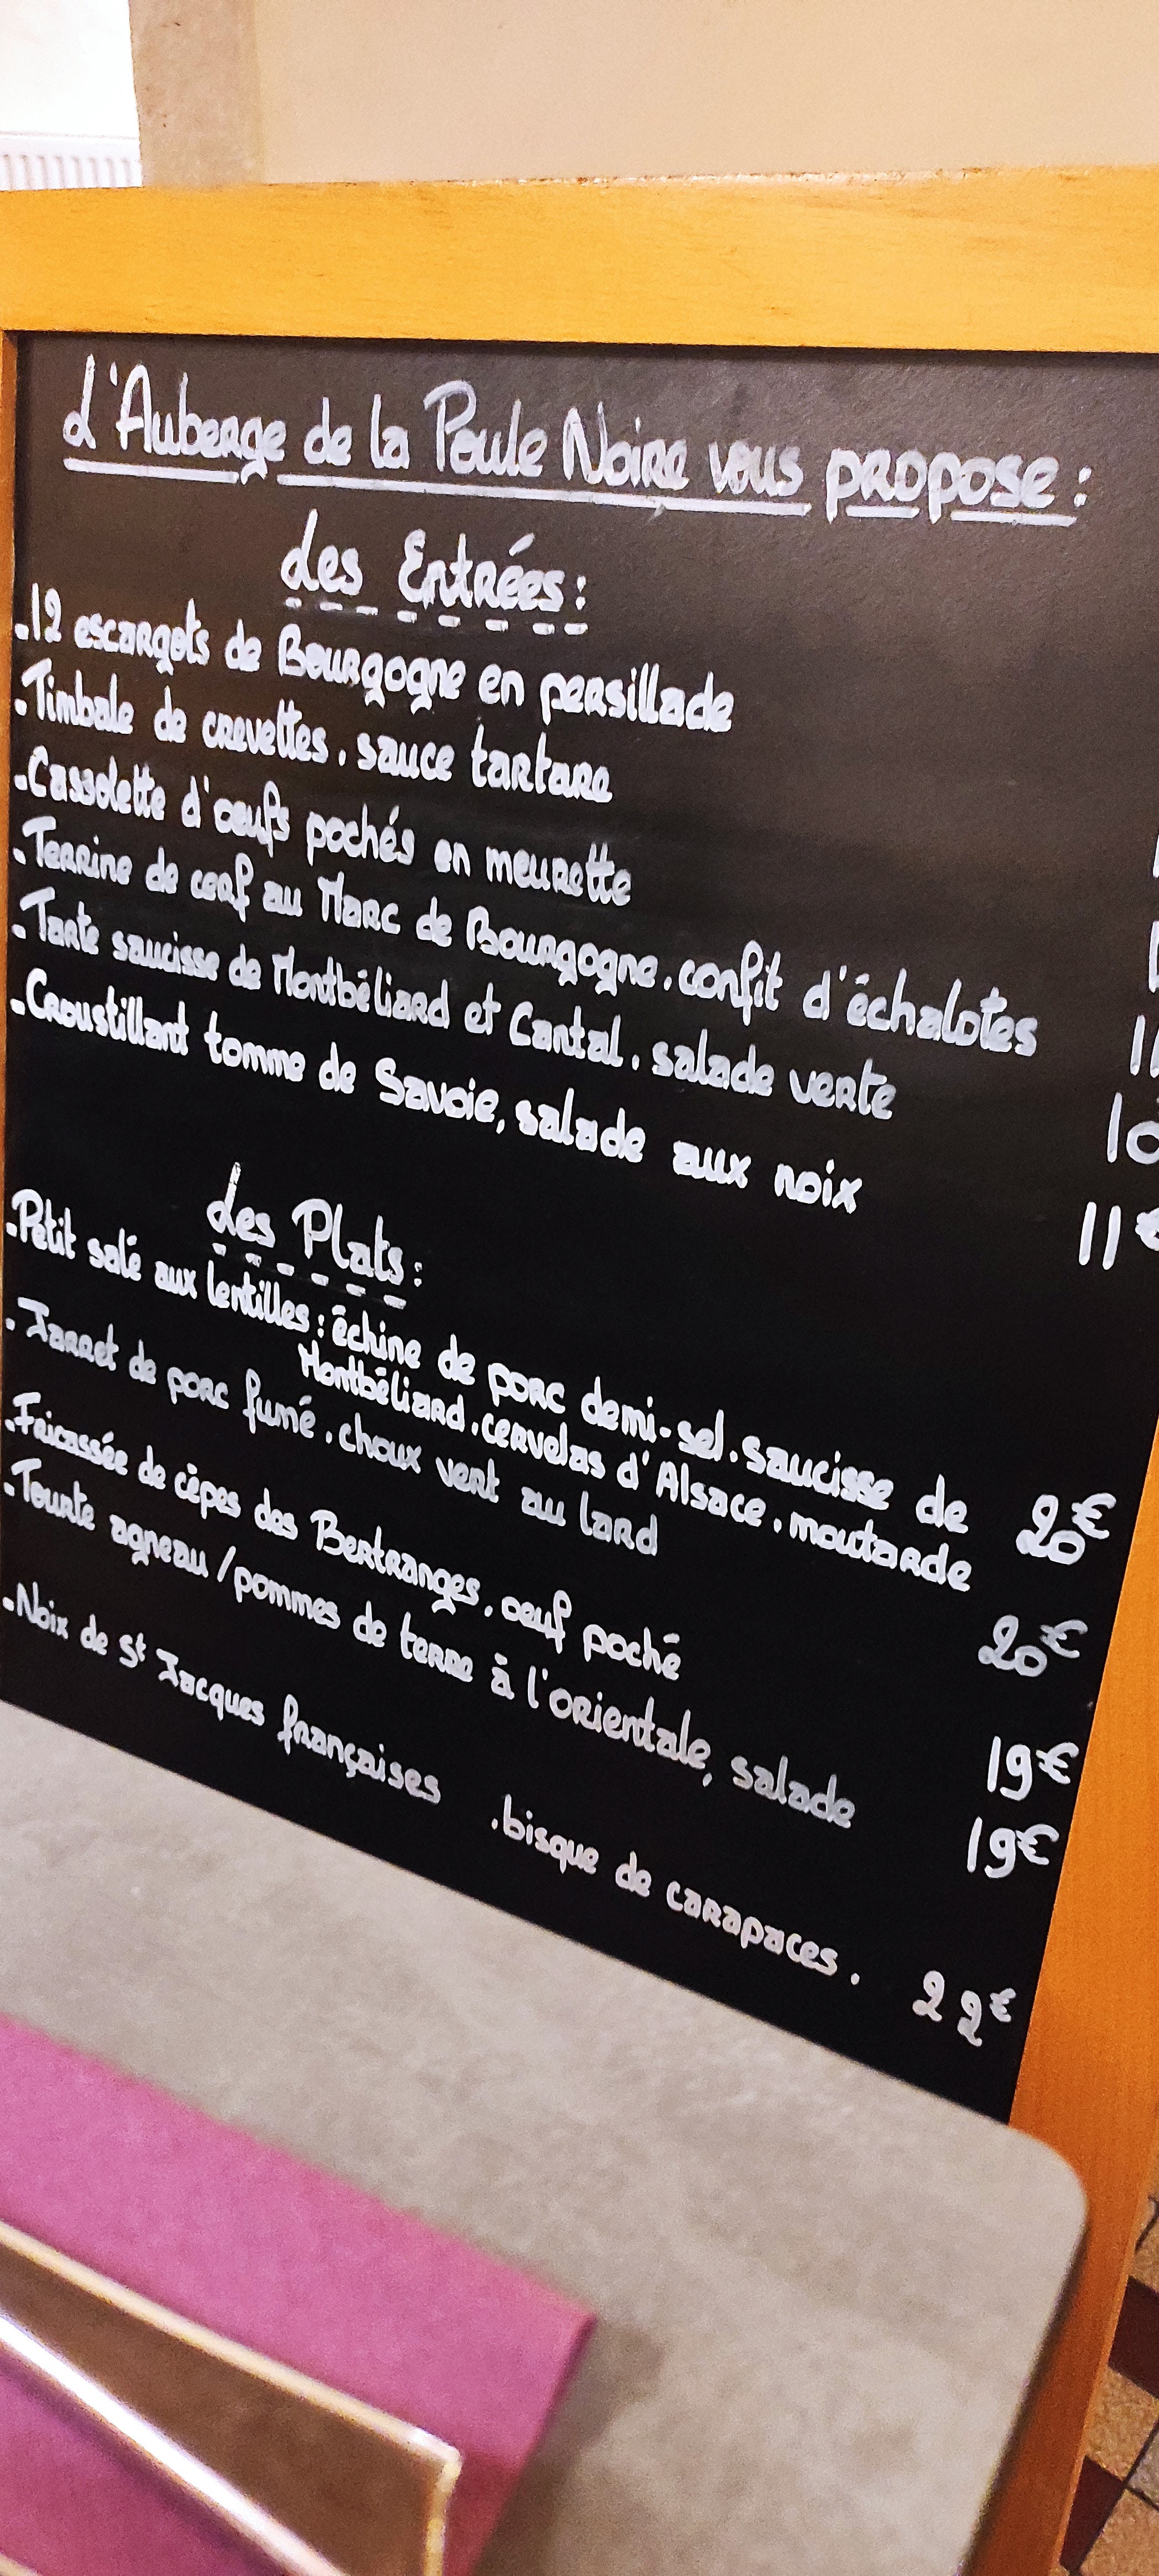 L'Auberge de la Poule Noire vous propose :
des Entrées :
. 12 escargots de Bourgogne en persillade
. Timbale de crevettes . sauce tartare
. Cassolette d'œufs pochés en meurette
. Terrine de cerf au Marc de Bourgogne . confit d'échalotes
. Tarte saucisse de Montbéliard et Cantal . salade verte 10
. Croustillant tomme de Savoie, salade aux noix 11€
des Plats :
. Petit salé aux lentilles : échine de porc demi-sel . saucisse de
Montbéliard . cervelas d'Alsace . moutarde 20€
. Jarret de porc fumé . choux vert au lard 20€
. Fricassée de cèpes des Bertranges . oeuf poché 19€
. Tourte agneau / pommes de terre à l'orientale, salade 19€
. Noix de St Jacques françaises . bisque de carapaces . 22€